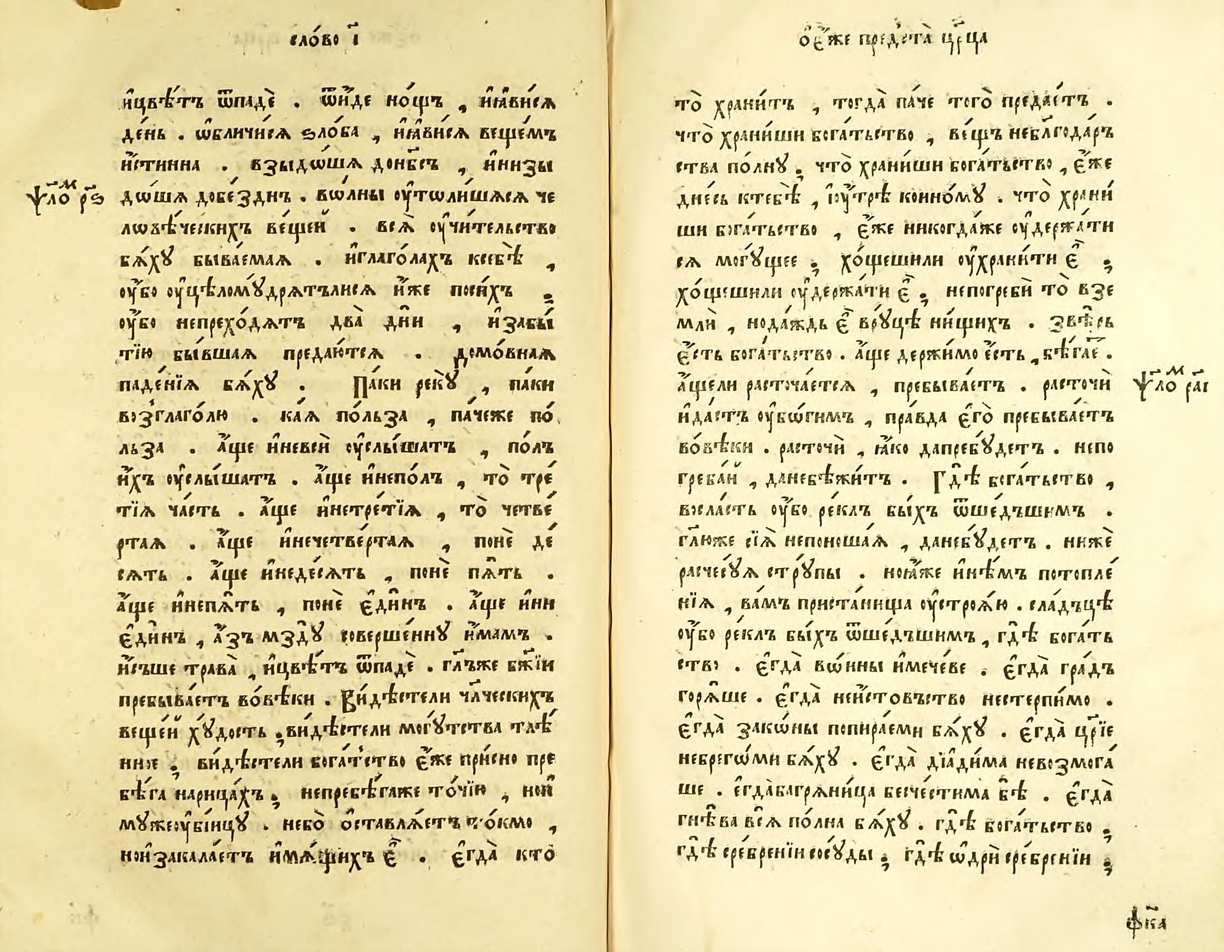 сло́во і҃
и҆цвѣ́тъ ѿпадѐ . ѿи́де но́щъ , и҆ꙗ҆ви́сѧ
де́нь . ѡ҆бличи́сѧ ѕло́ба , и҆ꙗ҆ви́сѧ ве́щемъ
и҆́стинна . взыдо́шѧ донб҃съ , и҆низы
ѱало́м рѕ҃
до́шѧ добе́зднъ . во́лны ᲂу҆толи́шѧсѧ че
ловѣ́ческихъ веще́й . всѧ̀ ᲂу҆чи́тельство
бѧ́хꙋ быва́емаѧ . и҆глаго́лахъ ксебѣ̀ ,
ᲂу҆́бо ᲂу҆цѣломꙋ́дрѧтълисѧ и҆̀же поси́хъ ;
ᲂу҆́бо непрехо́дѧтъ два̀ дни̑ , и҆забы́
тїю бы́вшаѧ предаю́тсѧ . домо́внаѧ
паде́нїѧ бѧ́хꙋ . Па́ки рекꙋ̀ , па́ки
возглаго́лю . ка́ѧ по́льза , па́чеже по́
льза . а҆́ще и҆невсѝ ᲂу҆слы́шатъ , по́лъ
и҆́хъ ᲂу҆слы́шатъ . а҆́ще и҆непо́лъ , то̀ тре́
тїѧ ча́сть . а҆́ще и҆нетре́тїѧ , то̀ четве́
ртаѧ . а҆́ще и҆нечетве́ртаѧ , понѐ де́
сѧть . а҆́ще и҆неде́сѧть , понѐ пѧ́ть .
а҆́ще и҆непѧ́ть , понѐ є҆ди́нъ . а҆́ще и҆ни
є҆ди́нъ , а҆́зъ мздꙋ̀ соверше́ннꙋ и҆́мамъ .
и҆́съше трава̀ , и҆цвѣ́тъ ѿпадѐ . гл҃ъже бж҃їи
пребыва́етъ во́вѣки . Ви́дѣстели чл҃ческихъ
веще́й хꙋ́дость ; ви́дѣстели могꙋ́тства тлѣ́
нїе ; ви́дѣстели бога́тство є҆́же при́сно пре
бѣ́га нарица́хъ ; непребѣ́гаже то́чїю , но́и
мꙋжеᲂу҆бі́йцꙋ . небо̀ ѡ҆ставлѧ́етъ то́кмо ,
нои҆закала́етъ и҆мѧ́щихъ є҆̀ . є҆гда̀ кто̀
ѻ҆є҆́же предста̀ цр҃ца
то̀ храни́тъ , тогда̀ па́че того̀ преда́стъ .
что̀ храни́ши бога́тьство , ве́щъ неблагода́рь
ства по́лнꙋ . что̀ храни́ши бога́тьство , є҆́же
дне́сь ктебѣ̀ , ю҆́трѣ кои҆но́мꙋ . что̀ храни́
ши бога́тьство , є҆́же никогда́же ᲂу҆держа́ти
сѧ могꙋ́щее ; хо́щешили ᲂу҆храни́ти є҆̀ ;
хо́щешили ᲂу҆держа́ти є҆̀ ; непогребѝ то̀ взе
млѝ , нода́ждь є҆̀ врꙋ́цѣ ни́щихъ . звѣ́рь
є҆́сть бога́тьство . а҆́ще держи́мо є҆́сть , бѣ́гае .
а҆́щели расточа́етсѧ , пребыва́етъ . расточѝ
ѱало́м ра҃і
и҆да́стъ ᲂу҆бо́гимъ , пра́вда є҆гѡ̀ пребыва́етъ
во́вѣки . расточѝ , ꙗ҆́ко дапребꙋ́детъ . непо
греба́й , данебѣжи́тъ . Гдѣ̀ бога́тьство ,
всла́сть ᲂу҆́бо ре́клъ бы́хъ ѿше́дъшимъ .
гл҃юже сїѧ̀ непоноша́ѧ , данебꙋ́детъ . нижѐ
расчесꙋ́ѧ стрꙋ́пы . ноꙗ҆́же и҆нѣ́мъ потопле́
нїѧ , ва́мъ приста́нища ᲂу҆строѧ́ю . сла́дъцѣ
ᲂу҆́бо ре́клъ бы́хъ ѿше́дъшимъ , гдѣ̀ бога́ть
ство . є҆гда̀ во́ины и҆мече́ве . є҆гда̀ гра́дъ
горѧ́ше . є҆гда̀ неи́стовъство нестерпи́мо .
є҆гда̀ зако́ны попира́еми бѧ́хꙋ . є҆гда̀ цр҃їе
небрего́ми бѧ́хꙋ . є҆гда̀ дїади́ма невозмога́
ше . є҆гда̀багрѧ́ница бесче́стима бѣ̀ . є҆гда̀
гнѣ́ва всѧ̀ по́лна бѧ́хꙋ . гдѣ̀ бога́тьство ;
гдѣ̀ сре́бренїи сосꙋ́ды ; гдѣ̀ ѻ҆дрѝ сре́бренїи ;
фк҃а